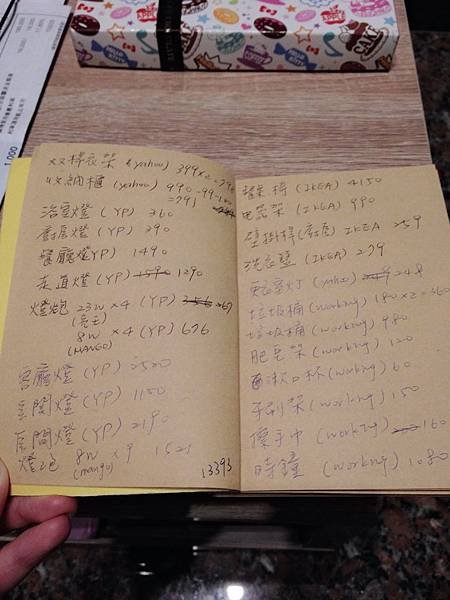 双桿衣架 (yahoo) 399×2=798
收納櫃 (yahoo) 990-99-100
=791
浴室燈 (YP) 360
廚房燈 (YP) 390
餐廳燈 (YP) 1490
走道燈 (YP) 1590 1290
燈炮 23W×4 (YP) 356 269
(亮王)
8W ×4 (YP) 676
(MANGO)
客廳燈 (YP) 2520
玄関燈 (YP) 1150
房間燈 (YP) 2190
燈泡 8W ×9 1521
(mango)
13393
(IKEA) 4150
電器架 (IKEA) 990
壁掛桿(廚房) IKEA 259
洗衣籃 (IKEA) 279
(yahoo) 248
垃圾桶 (working) 180×2=360
垃圾桶 (working) 980
肥皂架 (working) 120
漱口杯 (working) 60
牙刷架 (working) 150
擦手巾 (working) 160
時鐘 (working) 1080
1,000